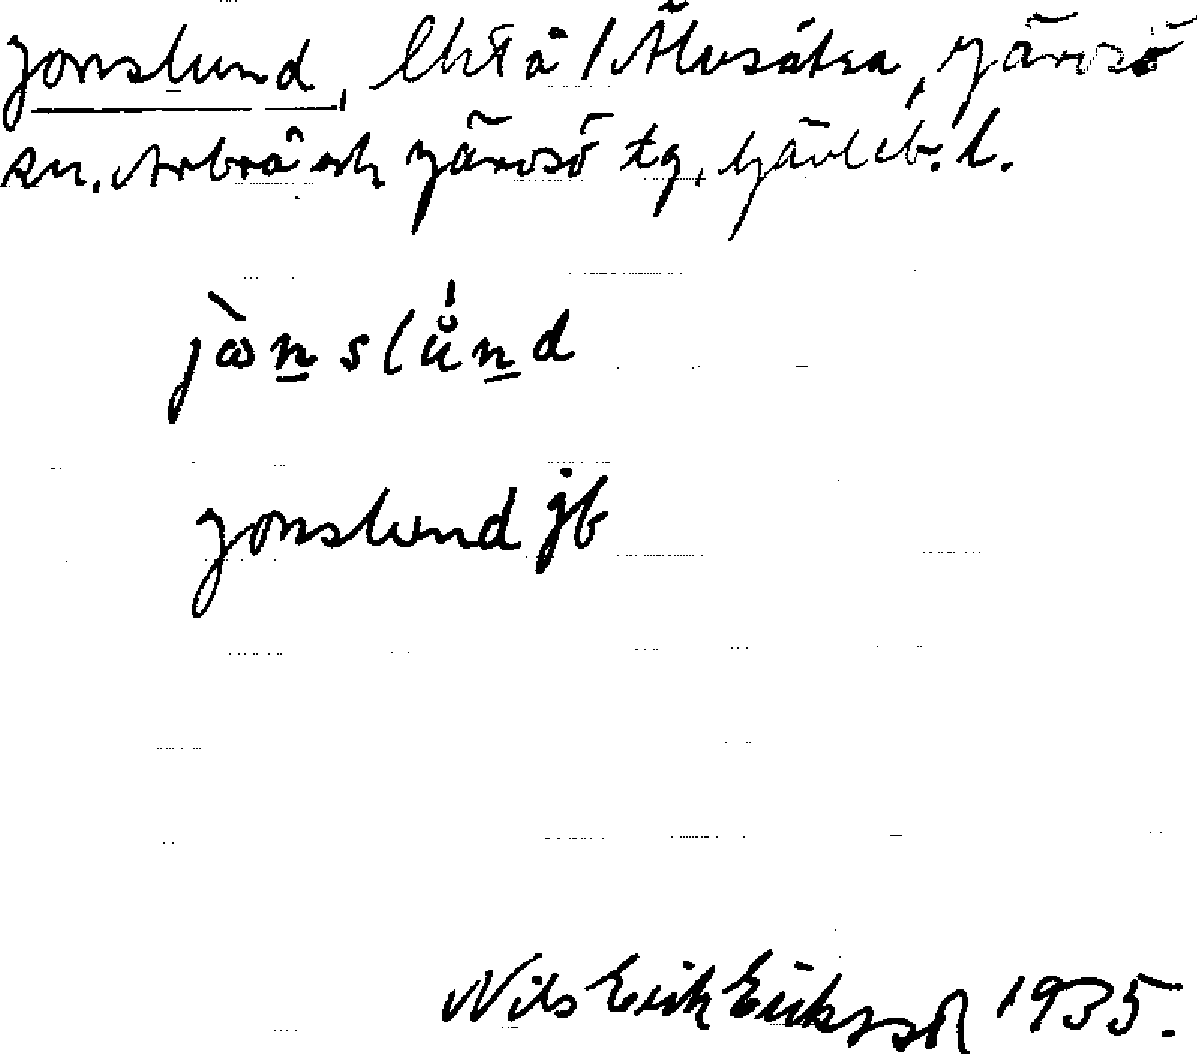 Jonslund, lht å Älvsätra, Järvsö
sn. Arbrå och Järvsö tg, Gävleb. l.
jònslund
Jonslund jb
Nils Erik Eriksson 1935.